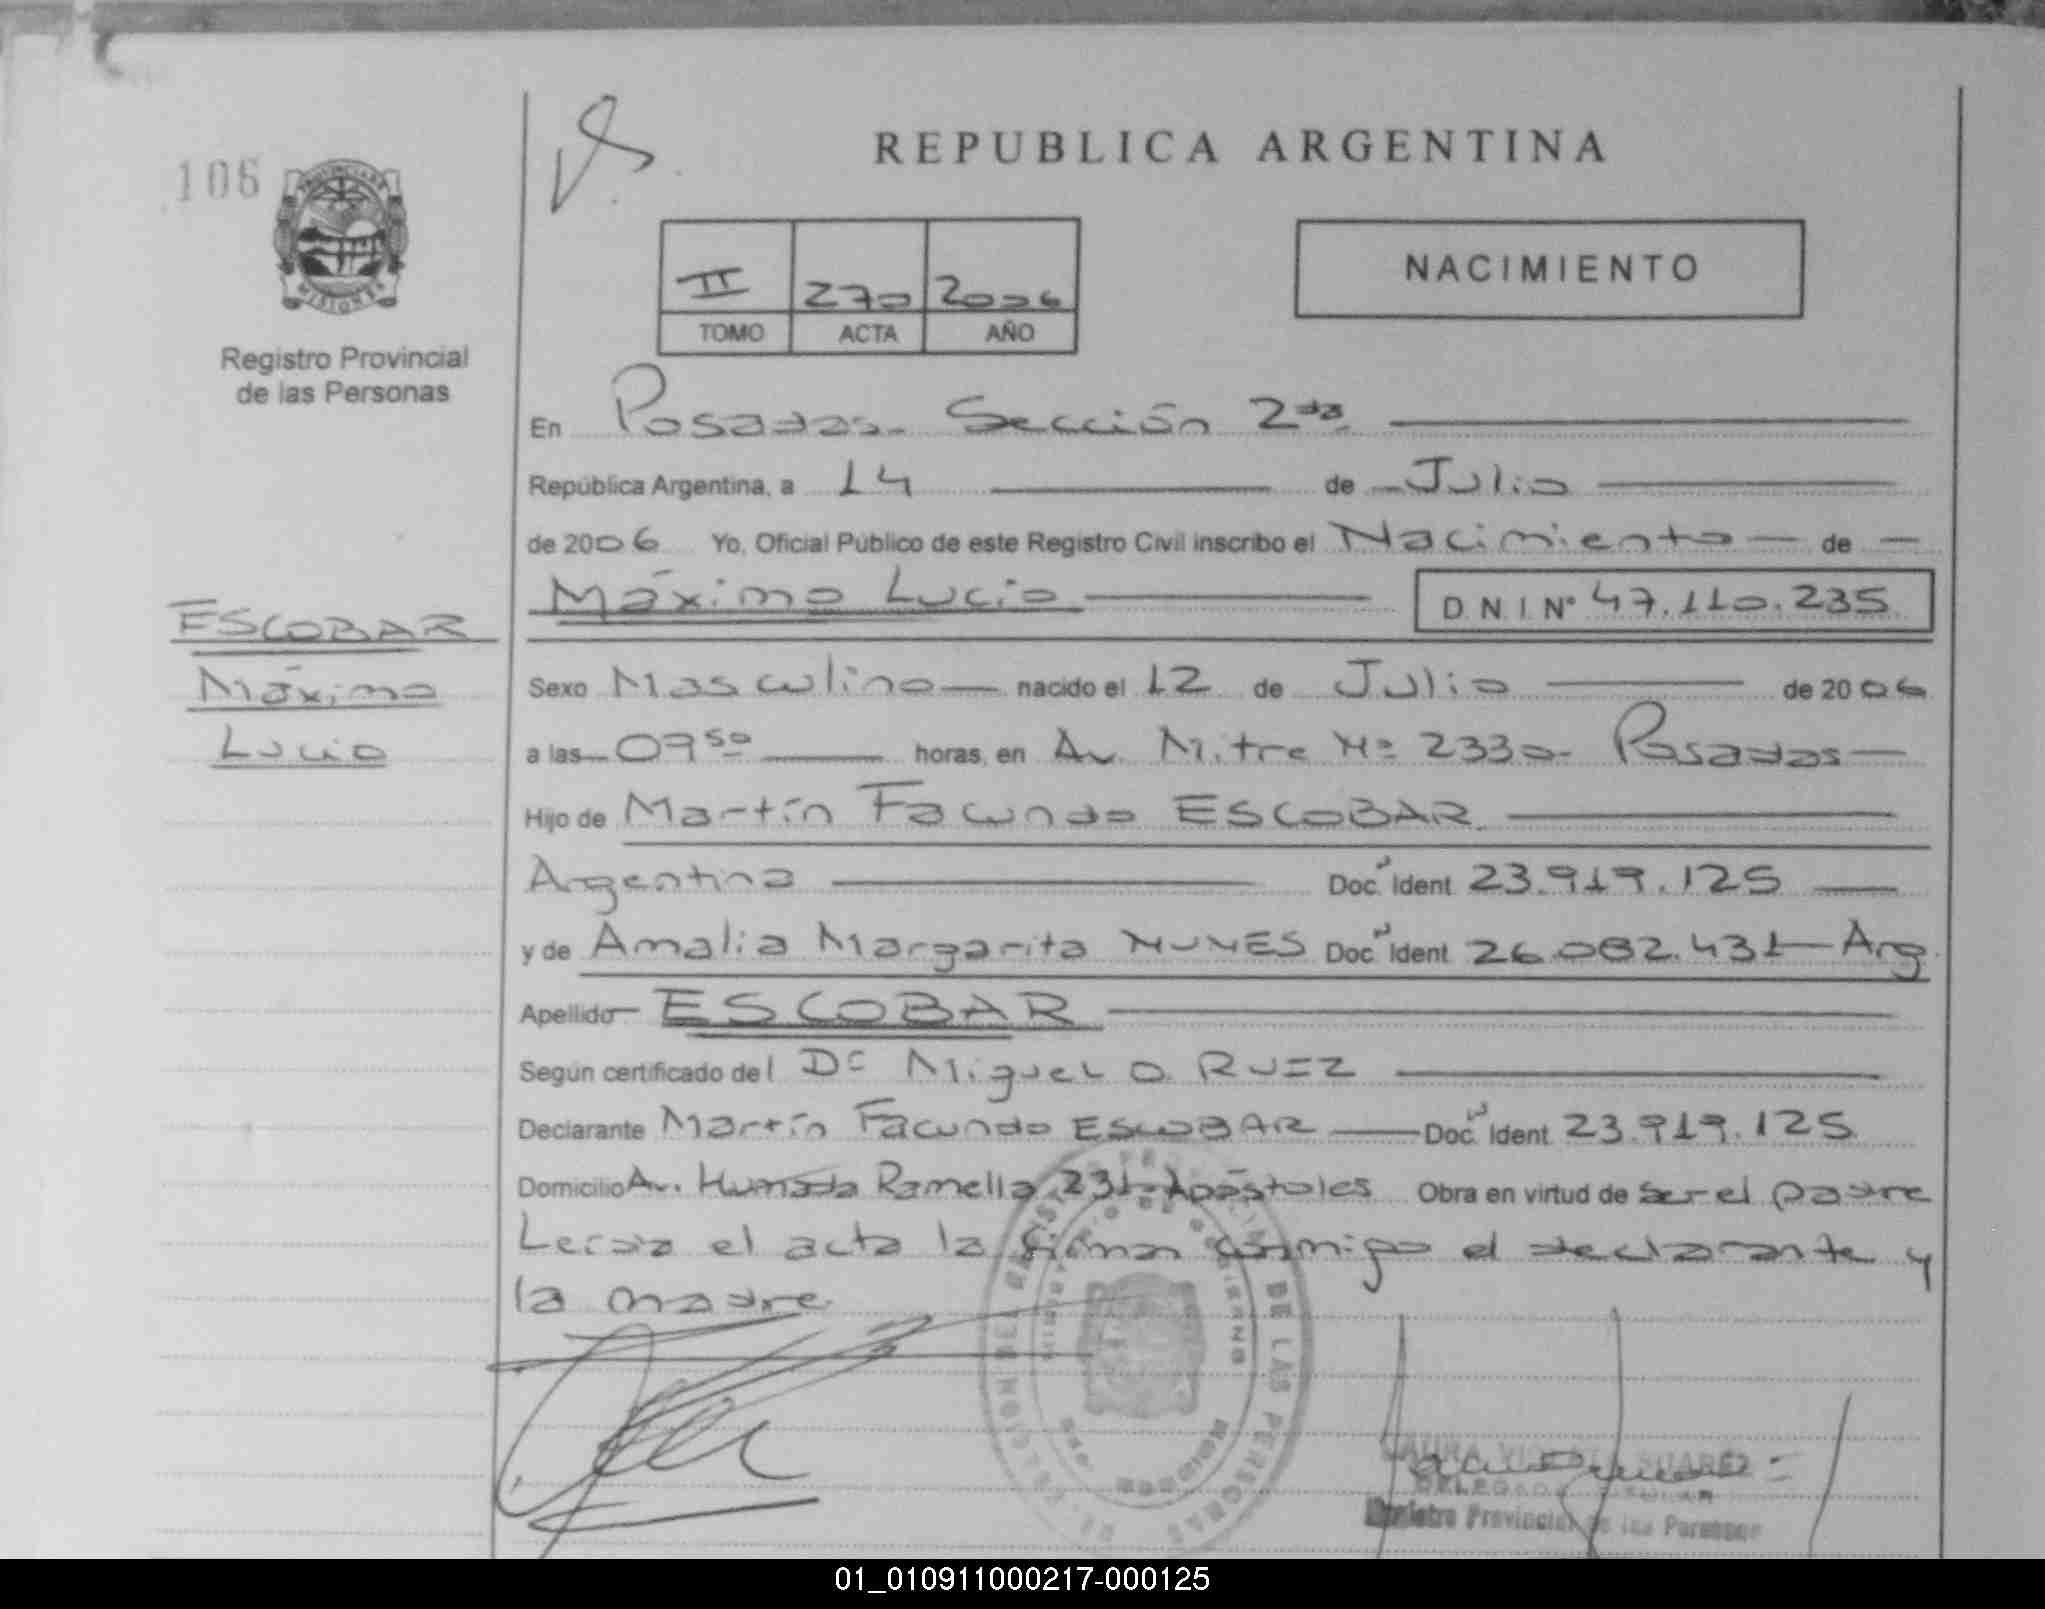 REPUBLICA ARGENTINA
106
PROVINCIA DE
MISIONES
Registro Provincial
de las Personas
II 270 2006
TOMO ACTA AÑO
NACIMIENTO
En Posadas- Sección 2da
República Argentina, a 14 de Julio
de 2006 Yo, Oficial Público de este Registro Civil inscribo el Nacimiento de
Máximo Lucio D.N.I. Nº 47.110.235
ESCOBAR
Máximo
Lucio
Sexo Masculino nacido el 12 de Julio de 2006
a las 09 50 horas, en Av. Mitre Nº 2330- Posadas
Hijo de Martín Facundo ESCOBAR
Argentina Doc. Ident 23.919.125
y de Amalia Margarita NUNES Doc. Ident 26.082.431- Arg
Apellido ESCOBAR
Según certificado del Dr Miguel O. RUEZ
Declarante Martín Facundo ESCOBAR Doc. Ident 23.919.125
Domicilio Av. Ramella 231- Apóstoles Obra en virtud de ser el padre
Leída el acta la firman conmigo el declarante y
la madre
DE LAS PERSONAS
GOBIERNO
MISIONES
LAURA SUAREZ
DELEGADA TITULAR
Registro Provincial de las Personas
01_010911000217-000125